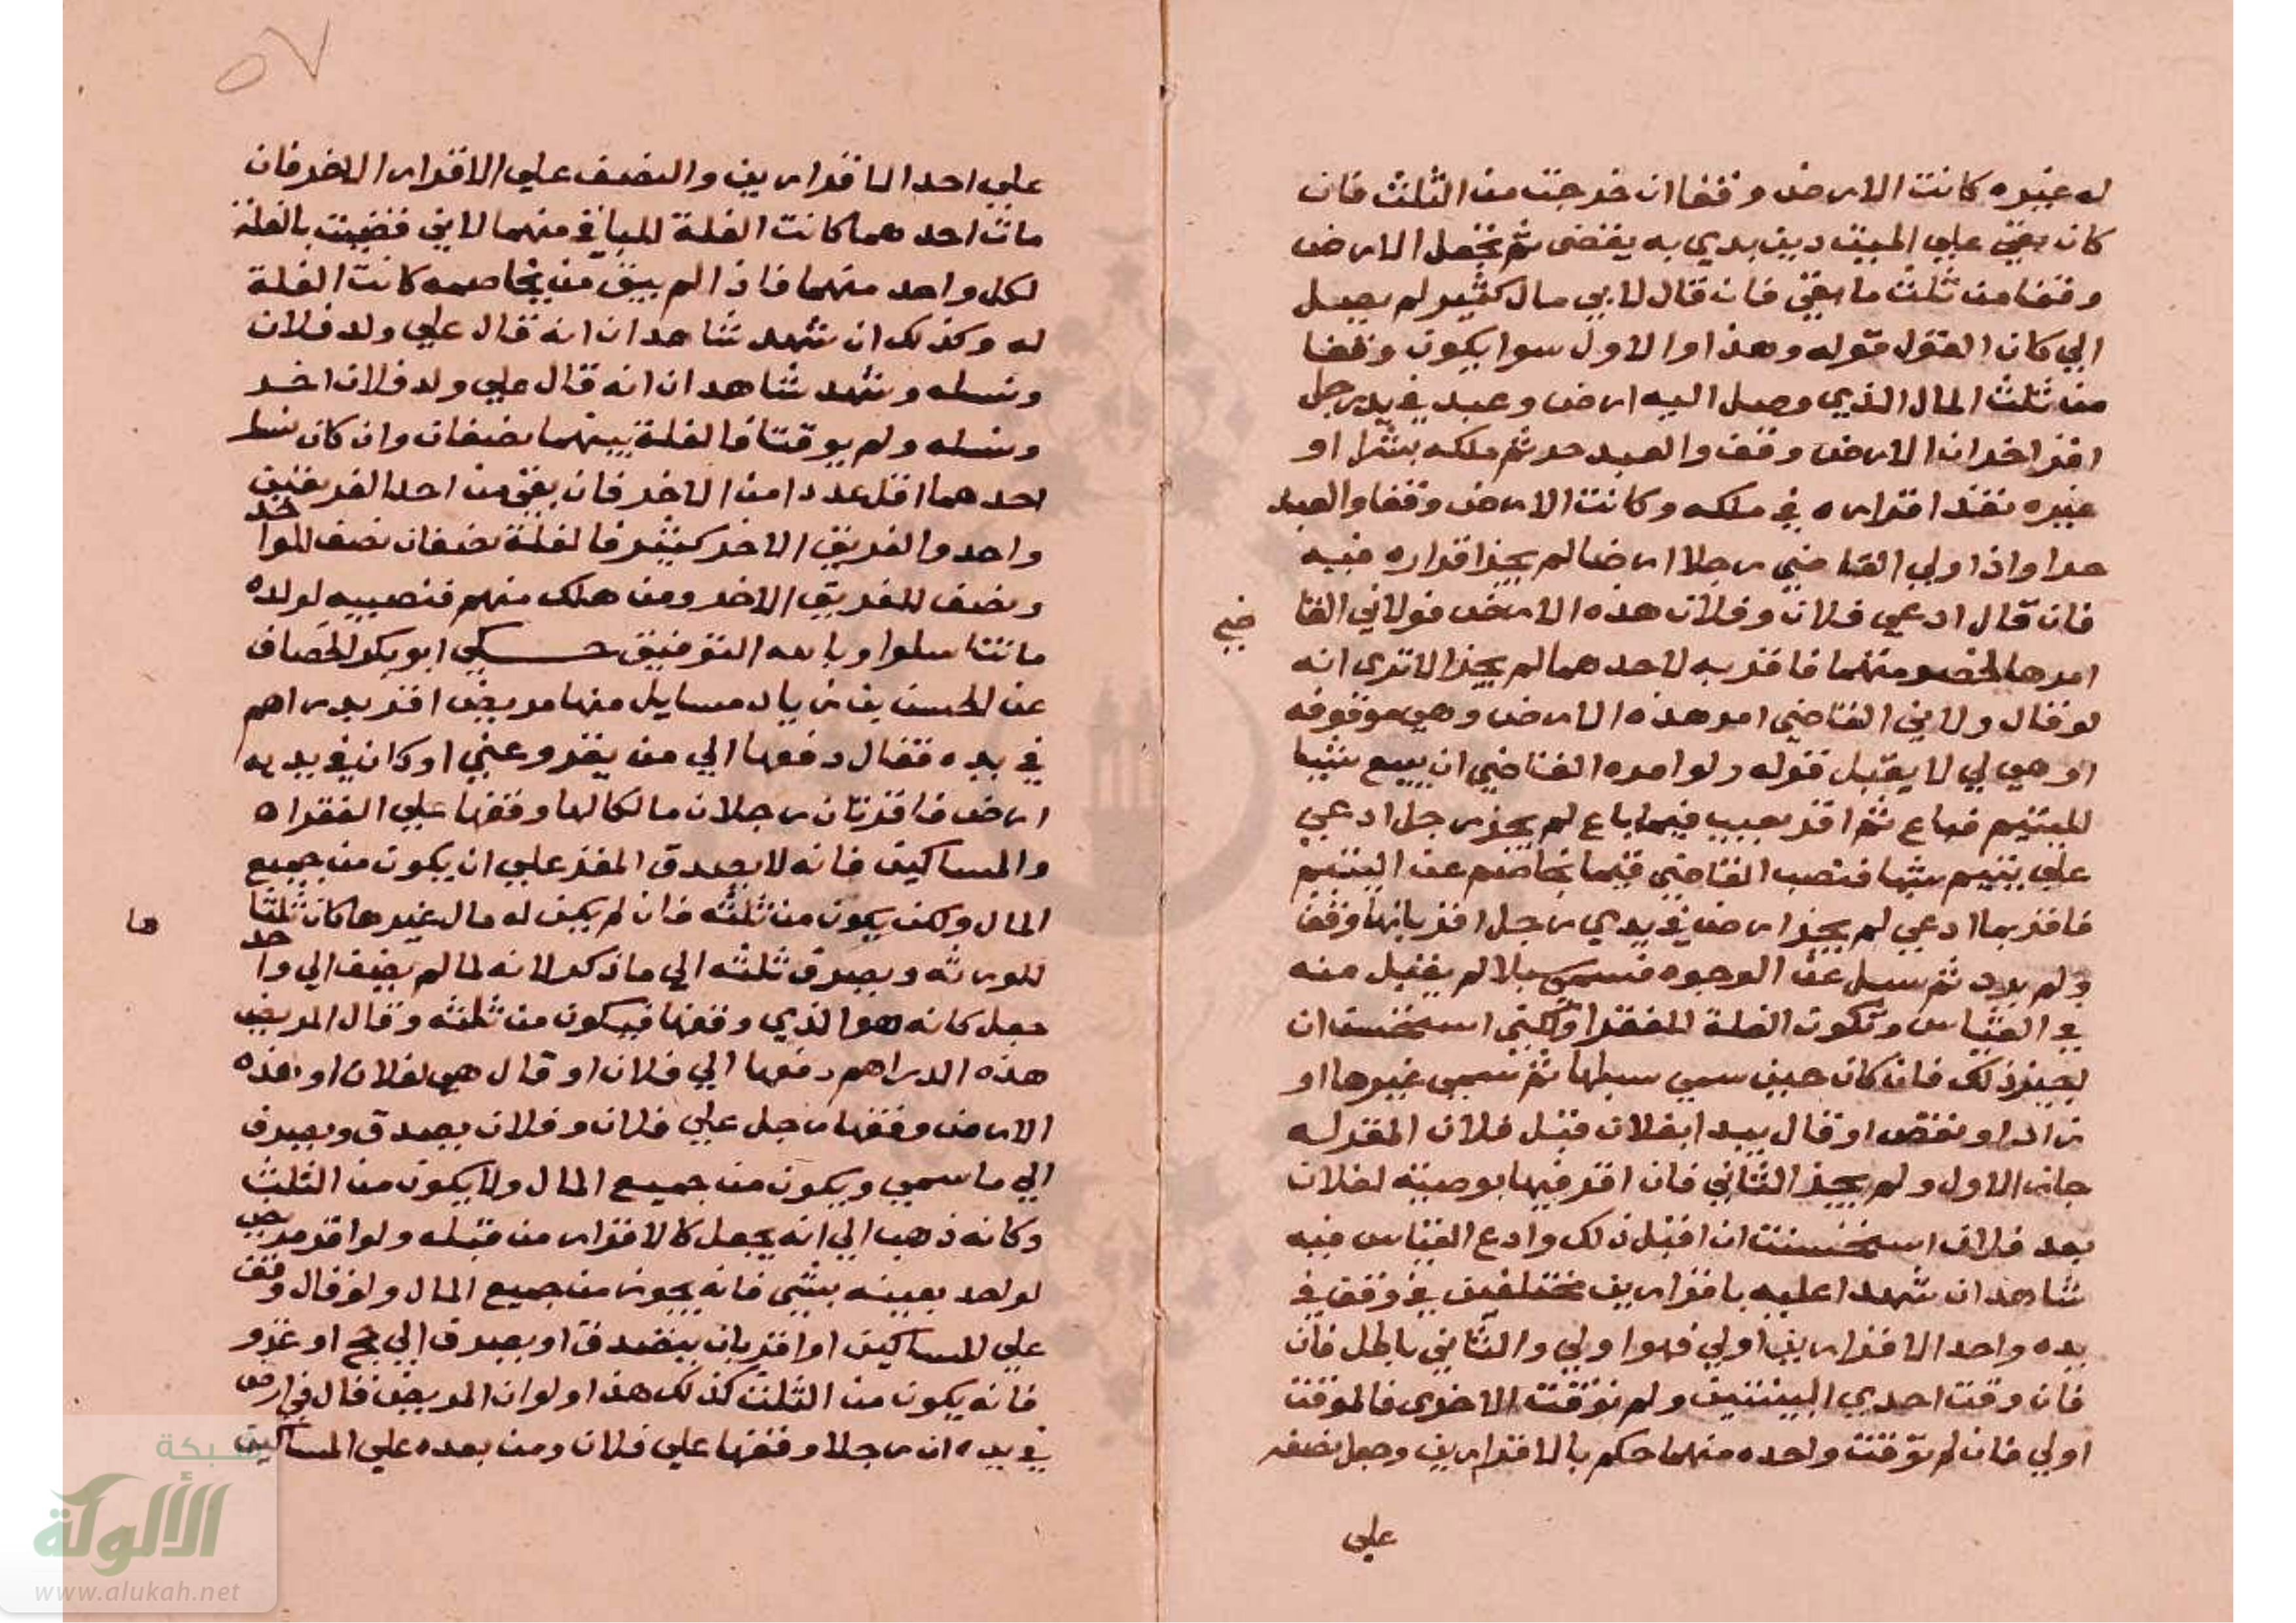 له غيره كانت الارض وقفا ان خرجت من الثلث فان
كان بقي علي الميت دين بدي به يقضي ثم تجعل الارض
وقفا من ثلث ما بقي فان قال لابي مال كثير لم يصل
الي كان القول قوله وهذا والاول سوا يكون وقفا
من ثلث المال الذي وصل اليه ارض وعبد في يد رجل
اقر اخر ان الارض وقف والعبد حر ثم ملكه بشرا او
غيره نفذ اقراره في ملكه وكانت الارض وقفا والعبد
حرا واذا ولي القاضي رجلا ارضا لم يجز اقراره فيه
فان قال ادعي فلان وفلان هذه الارض فولاني القا
ضي
امرها لخصومتهما فاقر به لاحدهما لم يجز الا تري انه
لو قال ولاني القاضي امر هذه الارض وهي موقوفه
او هي لي لا يقبل قوله ولو امره القاضي ان يبيع شيئا
لليتيم فباع ثم اقر بعيب فيما باع لم يجز رجل ادعي
علي يتيم شيئا فنصب القاضي قيما يخاصم عن اليتيم
فاقر بما ادعي لم يجز ارض في يدي رجل اقر بانها وقف
ولم يزد ثم سيل عن الوجوه فسمي سبلا لم يقبل منه
في القياس وتكون الغلة للفقرا ولكني استحسن ان
يجيز ذلك فان كان حين سمي سبلها ثم سمي غيرها او
زاد او نقص او قال يبدا بفلان قبل فلان المقر له
جاز الاول ولم يجز الثاني فان اقر فيها بوصيته لفلان
بعد فلان استحسنت ان اقبل ذلك وادع القياس فيه
شاهدان شهدا عليه باقرارين مختلفين في وقف في
يده واحد الاقرارين اولي فهو اولي والثاني باطل فان
فان وقت احدي البينتين ولم توقت الاخري فالموقت
اولي فان لم توقت واحده منهما حكم بالاقرارين وجعل نصفه
علي
٥٧
علي احد الاقرارين والنصف علي الاقرار الاخر فان
مات احدهما كانت الغلة للباقي منهما لاني قضيت بالغلة
لكل واحد منهما فاذا لم يبق من يخاصمه كانت الغلة
له وكذلك ان شهد شاهدان انه قال علي ولد فلان
ونسله وشهد شاهدان انه قال علي ولد فلان اخر
ونسله ولم يوقتا فالغلة بينهما نصفان وان كان نسل
احدهما اقل عددا من الاخر فان بقي من احد الفريقين
واحد والفريق الاخر كثير فالغلة نصفان نصف للواحد
ونصف للفريق الاخر ومن هلك منهم فنصيبه لولده
ما تناسلوا وبالله التوفيق حكي ابو بكر الخصاف
عن الحسن بن زياد مسايل منها مريض اقر بدراهم
في يده فقال دفعها الي من يغزو عني او كان في يديه
ارض فاقر بان رجلان مالكا لها وقفها علي الفقراء
والمساكين فانه لا يصدق المقر علي ان يكون من جميع
المال ولكن يكون من ثلثه فان لم يكن له مال غيرها كان ثلثا
ها
للورثه ويصرف ثلثه الي ما ذكر لانه لما لم يضف الي واحد
جعل كانه هو الذي وقفها فيكون من ثلثه وقال المريض
هذه الدراهم دفعها الي فلان او قال هي لفلان او هذه
الارض وقفها رجل علي فلان وفلان يصدق ويصرف
الي ما سمي ويكون من جميع المال ولا يكون من الثلث
وكانه ذهب الي انه يجعل كالاقرار من قبله ولو اقر مريض
لواحد بعينه بشي فانه يجوز من جميع المال ولو قال وقف
علي المساكين او اقر بان يتصدق او يصرف الي حج او غزو
فانه يكون من الثلث كذلك هذا ولو ان المريض قال في ارض
في يده ان رجلا وقفها علي فلان ومن بعده علي المساكين
شبكة
الألوكة
www.alukah.net